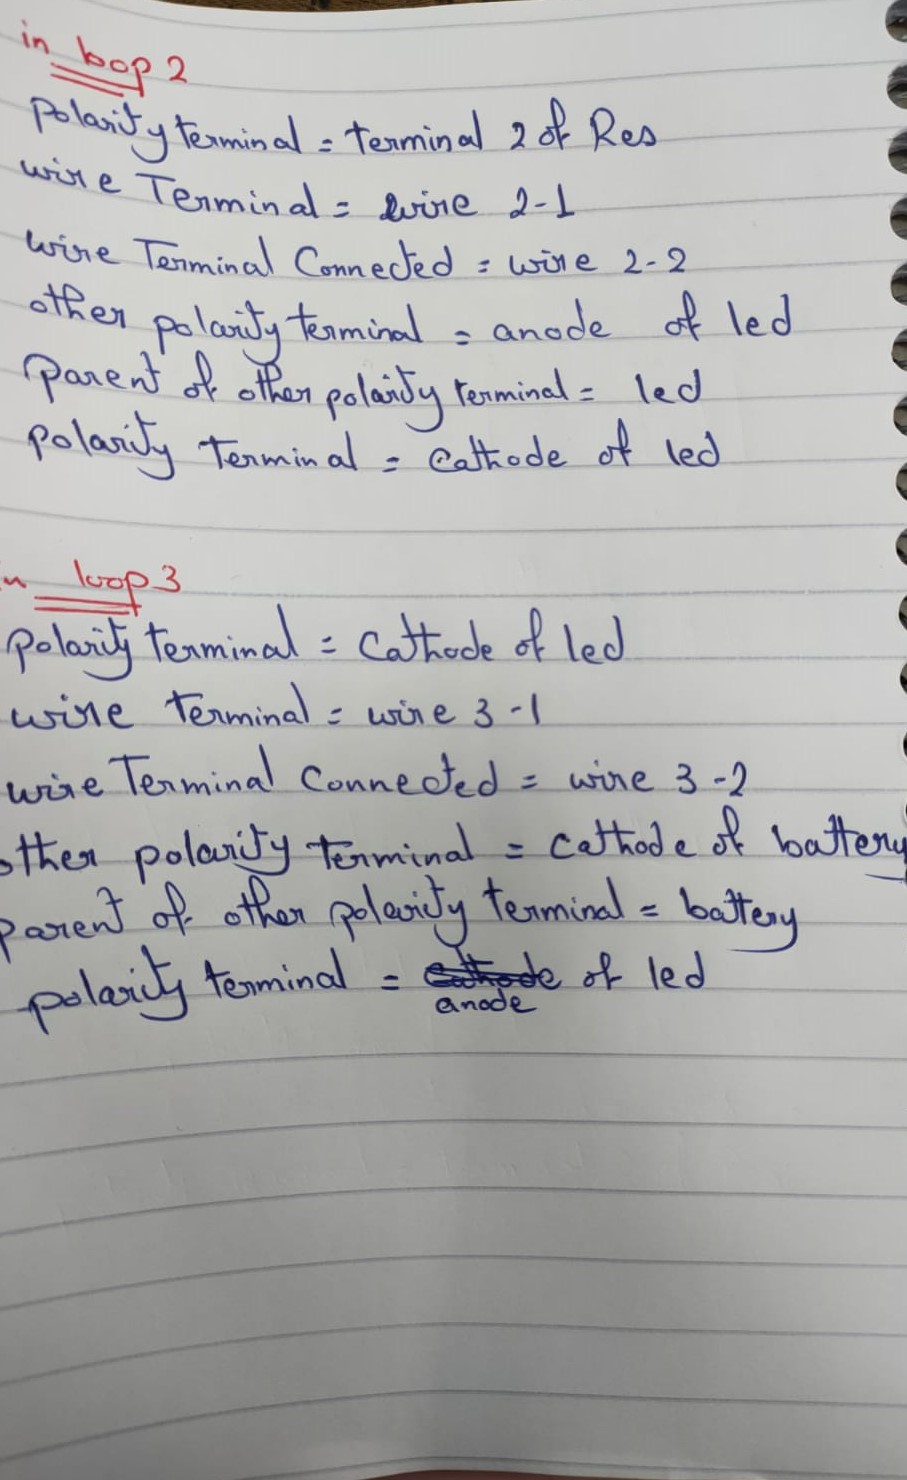 in loop 2
polarity terminal = terminal 2 of Res
wire Terminal = wire 2-1
wire Terminal Connected = wire 2-2
other polarity terminal = anode of led
parent of other polarity terminal = led
polarity Terminal = Cathode of led
in loop 3
polarity terminal = Cathode of led
wire terminal = wire 3-1
wire Terminal Connected = wire 3-2
other polarity terminal = Cathode of battery
parent of other polarity terminal = battery
polarity terminal = Cathode of led
anode